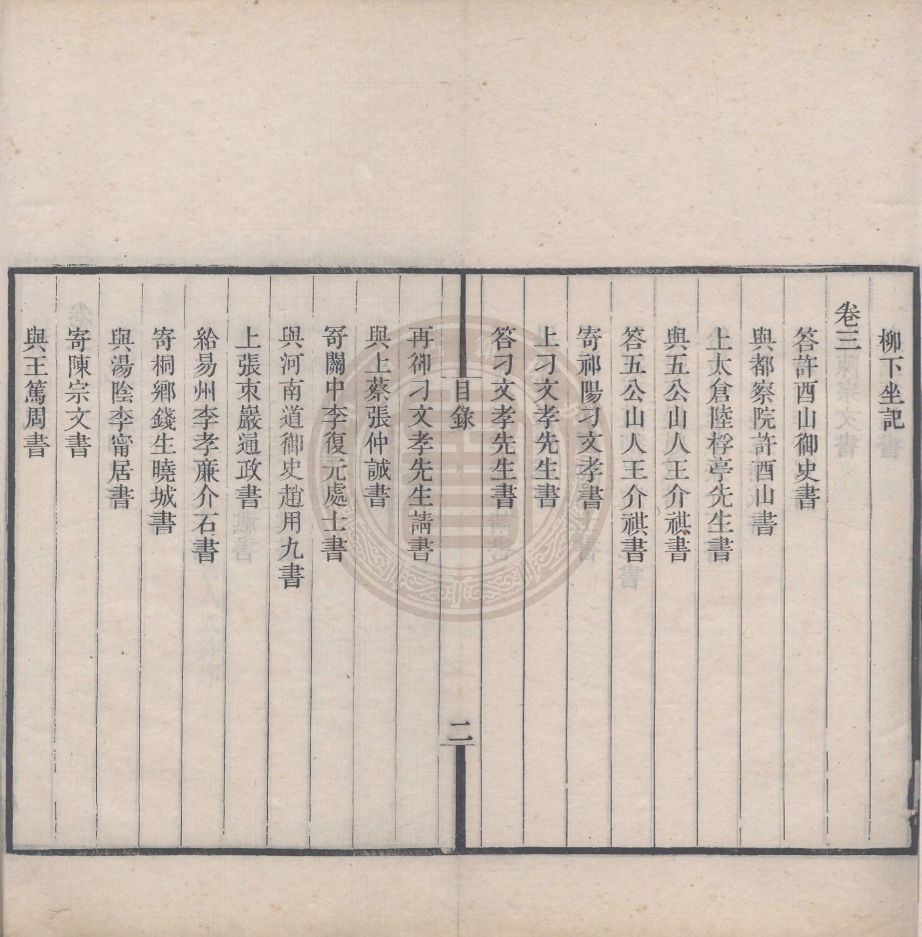 柳下坐記
卷三
答許酉山御史書
與都察院許酉山書
上太倉陸桴亭先生書
與五公山人王介祺書
答五公山人王介祺書
寄祁陽刁文孝書
上刁文孝先生書
答刁文孝先生書
目錄
二
再卻刁文孝先生請書
與上蔡張仲誠書
寄關中李復元處士書
與河南道御史趙用九書
上張東巖通政書
給易州李孝廉介石書
寄桐鄉錢生曉城書
與湯陰李甯居書
寄陳宗文書
與王篤周書